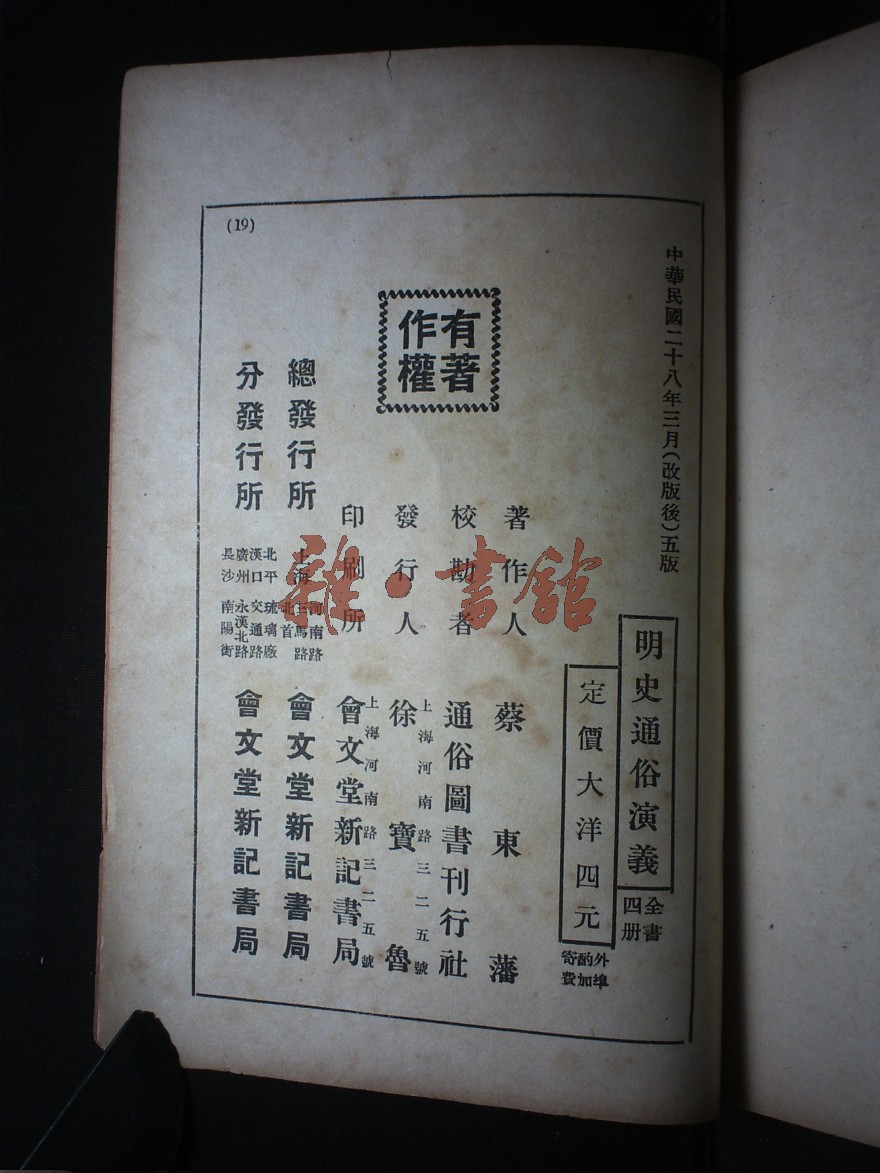 中華民國二十八年三月(改版後)五版
明史通俗演義
全書四册
定價大洋四元
外埠酌加寄費
有著作權
著作人 蔡東藩
校勘者 通俗圖書刊行社
發行人 徐寶魯
上海河南路三二五號
印刷所 會文堂新記書局
上海河南路三二五號
總發行所 上海 河南路三馬路北首 會文堂新記書局
分發行所 北平 琉璃廠 漢口 交通路 廣州 永漢北路 長沙 南陽街 會文堂新記書局
(19)
雜·書館